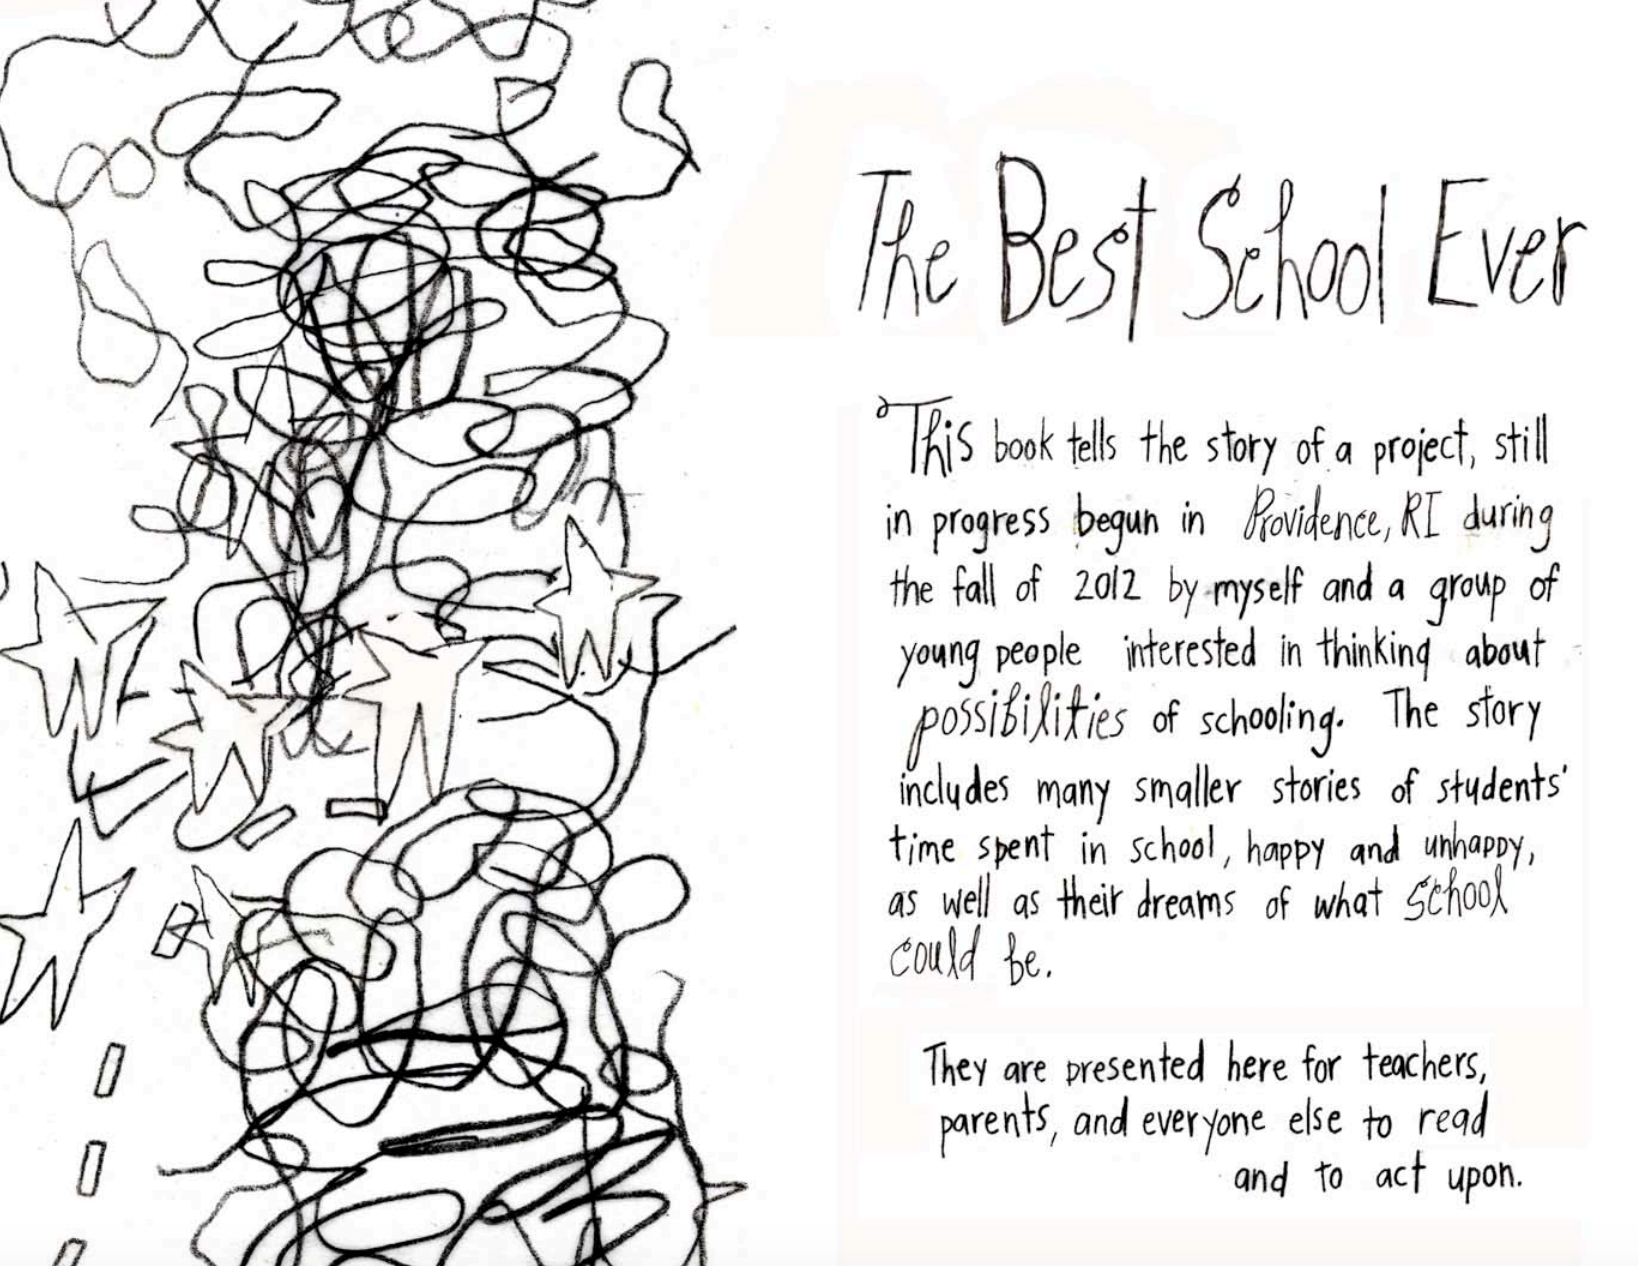 The Best School Ever
This book tells the story of a project, still
in progress begun in Providence, RI during
the fall of 2012 by myself and a group of
young people interested in thinking about
possibilities of schooling. The story
includes many smaller stories of students'
time spent in school, happy and unhappy,
as well as their dreams of what school
could be.
They are presented here for teachers,
parents, and everyone else to read
and to act upon.